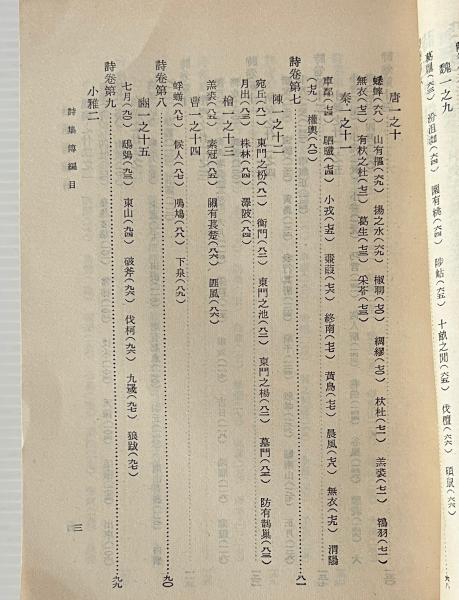 魏一之九
葛屨(六三) 汾沮洳(六四) 園有桃(六四) 陟岵(六五) 十畝之閒(六五) 伐檀(六六) 碩鼠(六六)
唐一之十
蟋蟀(六八) 山有樞(六九) 揚之水(六九) 椒聊(七〇) 綢繆(七〇) 杕杜(七一) 羔裘(七一) 鴇羽(七一)
無衣(七二) 有杕之杜(七二) 葛生(七三) 采苓(七三)
秦一之十一
車鄰(七四) 駟驖(七四) 小戎(七五) 蒹葭(七六) 終南(七七) 黃鳥(七七) 晨風(七八) 無衣(七九) 渭陽
(七九) 權輿(八〇)
詩卷第七……八一
陳一之十二
宛丘(八一) 東門之枌(八一) 衡門(八二) 東門之池(八二) 東門之楊(八二) 墓門(八三) 防有鵲巢(八三)
月出(八三) 株林(八四) 澤陂(八四)
檜一之十三
羔裘(八五) 素冠(八五) 隰有萇楚(八六) 匪風(八六)
曹一之十四
蜉蝣(八七) 候人(八七) 鳲鳩(八八) 下泉(八九)
詩卷第八……九〇
豳一之十五
七月(九〇) 鴟鴞(九三) 東山(九四) 破斧(九六) 伐柯(九六) 九罭(九七) 狼跋(九七)
詩卷第九……九九
小雅二
詩集傳編目
三